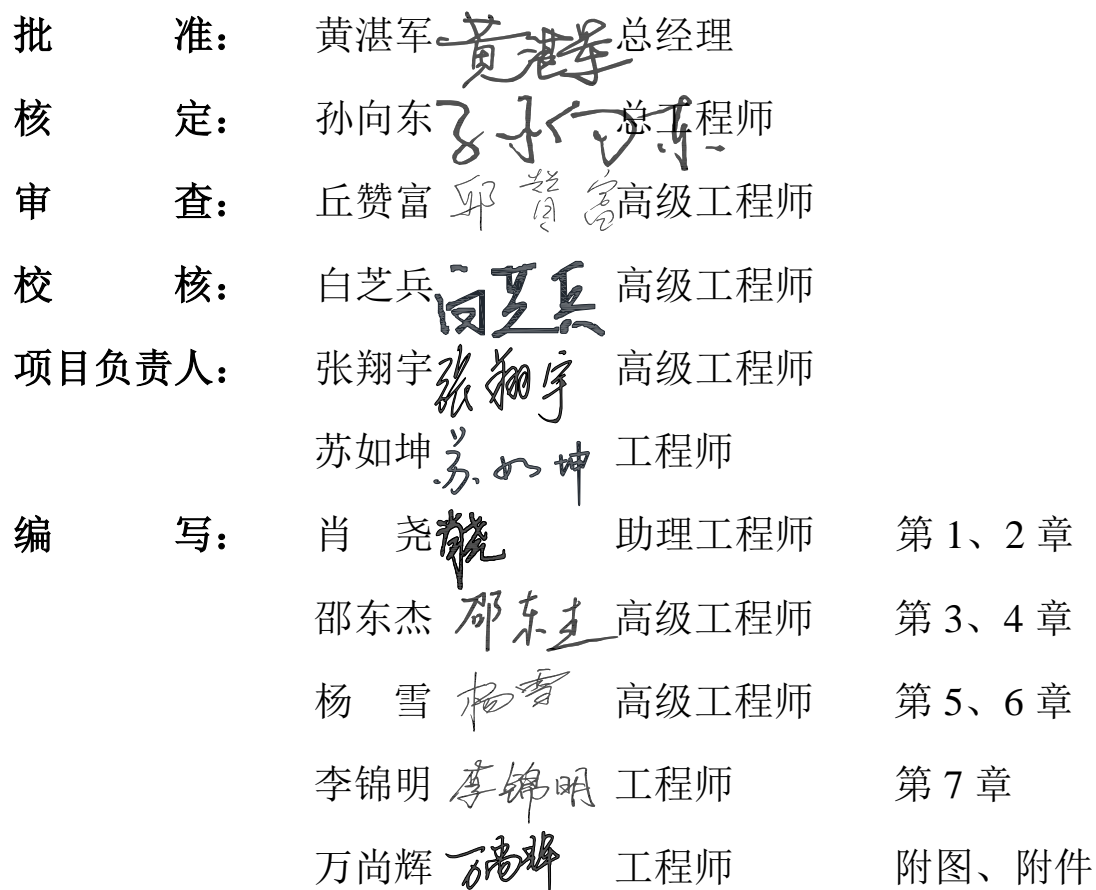 批 准： 黄湛军 黄湛军 总经理
核 定： 孙向东 孙向东 总工程师
审 查： 丘赞富 邱赞富 高级工程师
校 核： 白芝兵 白芝兵 高级工程师
项目负责人： 张翔宇 张翔宇 高级工程师
苏如坤 苏如坤 工程师
编 写： 肖 尧 肖尧 助理工程师 第 1、2 章
邵东杰 邵东杰 高级工程师 第 3、4 章
杨 雪 杨雪 高级工程师 第 5、6 章
李锦明 李锦明 工程师 第 7 章
万尚辉 万尚辉 工程师 附图、附件